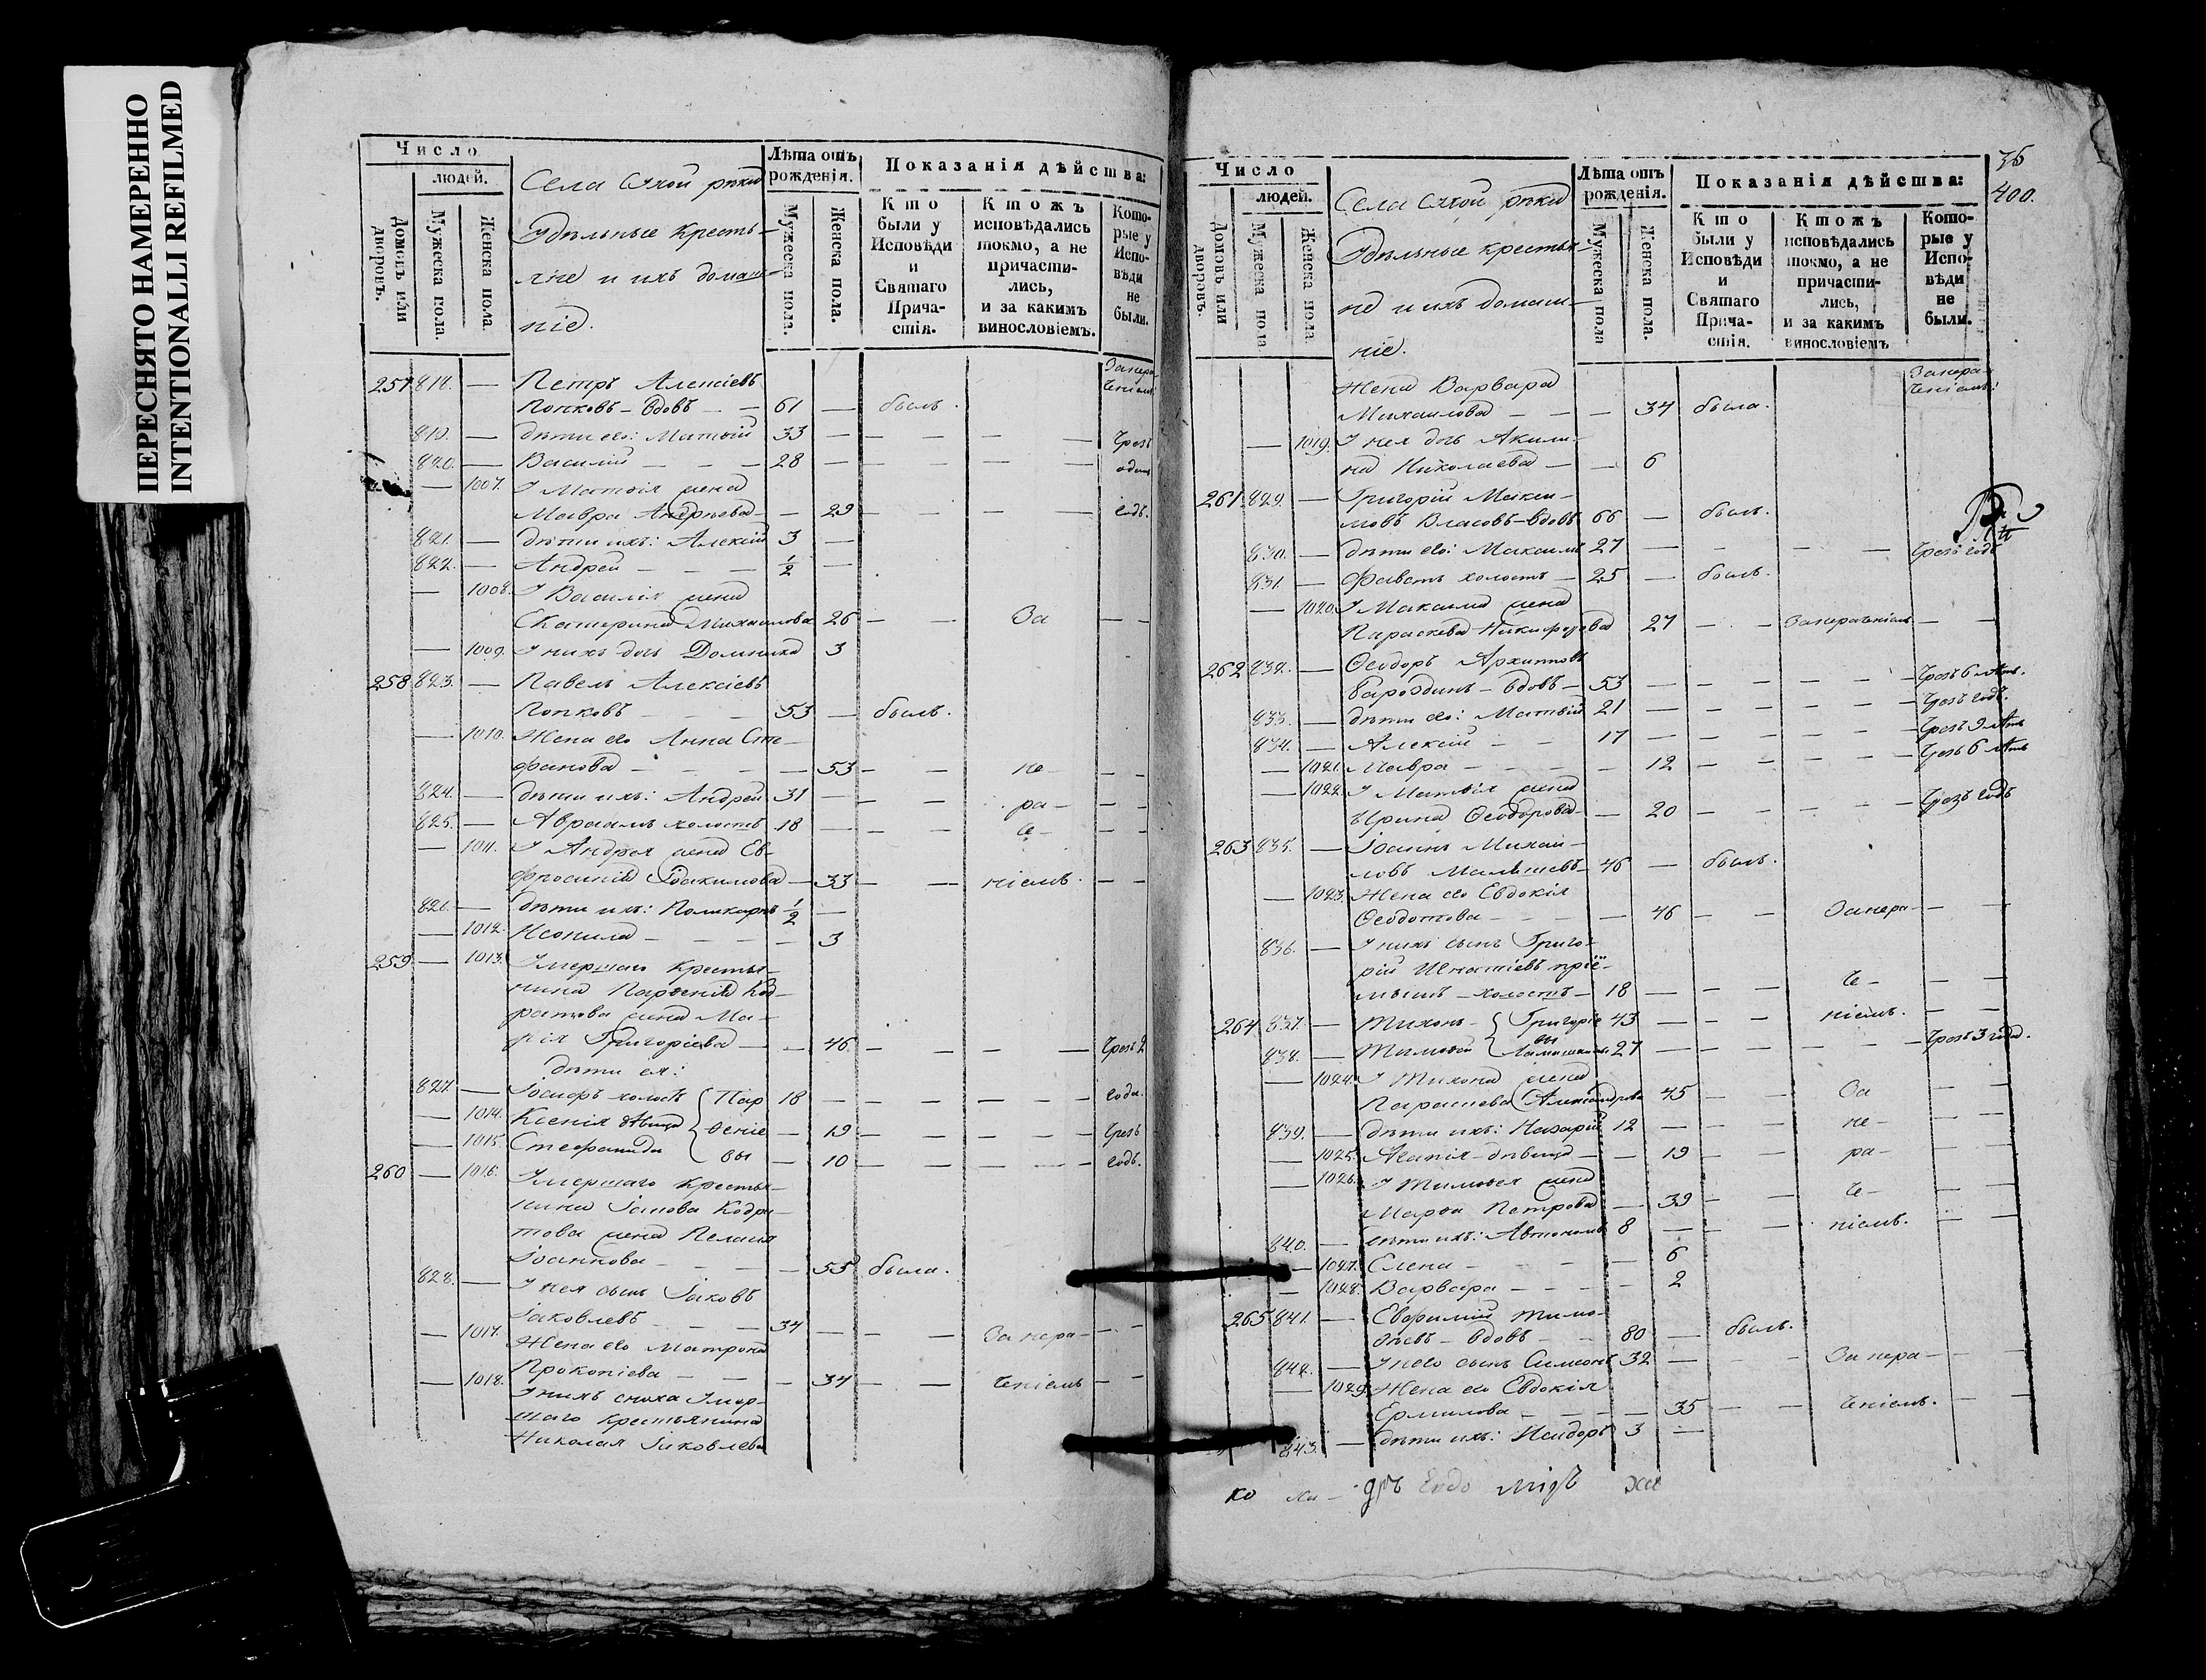 ПЕРЕСНЯТО НАМЕРЕННО
INTENTIONALLI REFILMED
Число
людей.
Домовъ или дворовъ.
Мужеска пола.
Женска пола.
Села Сухой рѣки
Удѣльные кресть-
яне и ихъ домаш-
ніе.
Лѣта отъ рожденія.
Мужеска пола.
Женска пола.
Показанія дѣйства:
Кто были у Исповѣди и Святаго Прича-стія.
Ктожъ исповѣдались токмо, а не причасти-лись, и за какимъ винословіемъ.
Кото-рые у Испо-вѣди не были.
257 818. — Петръ Алексіевъ
Попковъ – вдовъ — — 61 — былъ.
819. — дѣти его: Матвій 33 — — — — — Чрезъ
820. — Василій — — — 28 — — — — — одинъ
— 1007. У Матвія жена
Мавра Андреева — — 29 — — — — годъ.
821. — дѣти ихъ: Алексій 3 —
822. — Андрей — — — 1/2 —
— 1008. У Василія жена
Екатерина Михаилова 26 — — За — —
— 1009. У нихъ дочь Домника 3
258 823. — Павелъ Алексіевъ
Попковъ — — — 53 — былъ.
— 1010. Жена его Анна Сте-
фанова — — — — 53 — — не — — —
824. — дѣти ихъ: Андрей 31 — — — ра — — —
825. — Авраамъ холостъ 18 — — — че — — —
— 1011. У Андрея жена Ев-
фросинія Іоакимова — 33 — — ніемъ. — —
826. — дѣти ихъ: Поликарпъ 1/2 —
— 1012. Неонила — — — — 3
259 — 1013. Умершаго крестья-
нина Парѳенія Код-
ратова жена Ма-
рія Григоріева — — 46 — — — — Чрезъ 2
дѣти ея:
827. — Іосифъ холостъ { Пар 18 — — — — — года.
— 1014. Ксенія дѣвица { ѳеніе — 19 — — — — Чрезъ
— 1015. Стефанида { вы — 10 — — — — годъ.
260 — 1016. Умершаго крестья-
нина Іакова Кодра-
това жена Пелагія
Іоаннова — — — — 55 была.
828. — У нея сынъ Іаковъ
Іаковлевъ — — — 34 — — — За нера — — —
— 1017. Жена его Матрона
Прокопіева — — — 34 — — ченіемъ — —
— 1018. У нихъ сноха Умер-
шаго крестьянина
Николая Іаковлева
36
400.
Число
людей.
Домовъ или дворовъ.
Мужеска пола
Женска пола
Села Сухой рѣки
Удѣльные крестья-
не и ихъ домаш-
ніе.
Лѣта отъ рожденія.
Мужеска пола
Женска пола.
Показанія дѣйства:
Кто были у Исповѣди и Святаго Прича-стія.
Ктожъ исповѣдались токмо, а не причасти-лись, и за какимъ винословіемъ
Кото-рые у Испо-вѣди не были.
Жена Варвара
Михаилова — — — 34 была.
— 1019. У нея дочь Акили-
на Николаева — — 6
261 829. — Григорій Макси-
мовъ Власовъ – вдовъ 66 — былъ.
830. — дѣти его: Максимъ 27 — — — — Чрезъ годъ
831. — Фавстъ холостъ — 25 — былъ.
— 1020. У Максима жена
Параскева Никифорова 27 — — За нераченіемъ — —
262 832. — Ѳеодоръ Архиповъ
Бароздинъ – вдовъ — 53 — — — — — Чрезъ 6 лѣтъ.
833. — дѣти его: Матвій 21 — — — — — Чрезъ годъ.
834. — Алексій — — 17 — — — — — Чрезъ 9 лѣтъ
— 1021. Мавра — — — — 12 — — — — Чрезъ 6 лѣтъ
— 1022. У Матвія жена
Ирина Ѳеодорова — — 20 — — — — Чрезъ годъ
263 835. — Іоаннъ Михаи-
ловъ Малышевъ — 46 — былъ.
— 1023. Жена его Евдокія
Ѳеодотова — — — — 46 — — За нера — — —
836. — У нихъ сынъ Григо-
рій Игнатіевъ пріё-
мышъ – холостъ — 18 — — — че — — —
264 837. — Тихонъ { Григоріе 43 — — — ніемъ. — —
838. — Тимоѳей { вы 27 — — — — — Чрезъ 3 года.
— 1024. У Тихона жена
Параскева Александрова 45 — — За — —
839. — дѣти ихъ: Назарій 12 — — — не — — —
— 1025. Агапія – дѣвица — — 19 — — ра — — —
— 1026. У Тимоѳея жена
Марѳа Петрова — 39 — — че — — —
840. — дѣти ихъ: Автономъ 8 — — — ніемъ. — —
— 1027. Елена — — — — 6
— 1028. Варвара — — — — 2
265 841. — Евфимій Тимо-
ѳеевъ – вдовъ — — 80 — былъ.
842. — У него сынъ Симеонъ 32 — — — За нера — — —
— 1029. Жена его Евдокія
Ермилова — — — — 35 — — ченіемъ. — —
843. — дѣти ихъ: Исидоръ 3 —